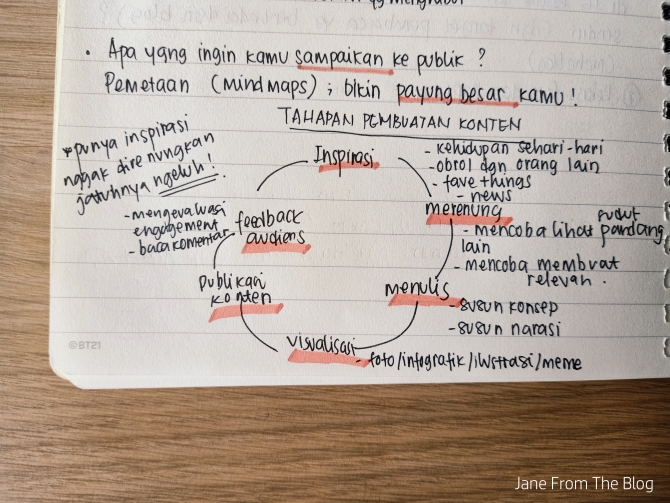 • Apa yang ingin kamu sampaikan ke publik ?
Pemetaan (mindmaps) ; bikin payung besar kamu !
TAHAPAN PEMBUATAN KONTEN
*punya inspirasi
nggak direnungkan
jatuhnya ngeluh !
Inspirasi
- kehidupan sehari-hari
- obrol dgn orang lain
- fave things
- news
merenung
- mencoba lihat sudut pandang
lain
- mencoba membuat
relevan .
menulis
- susun konsep
- susun narasi
visualisasi
- foto/infografik/ilustrasi/meme
publikasi
konten
feedback
audiens
- mengevaluasi
engagement
- baca komentar
©BT21
Jane From The Blog